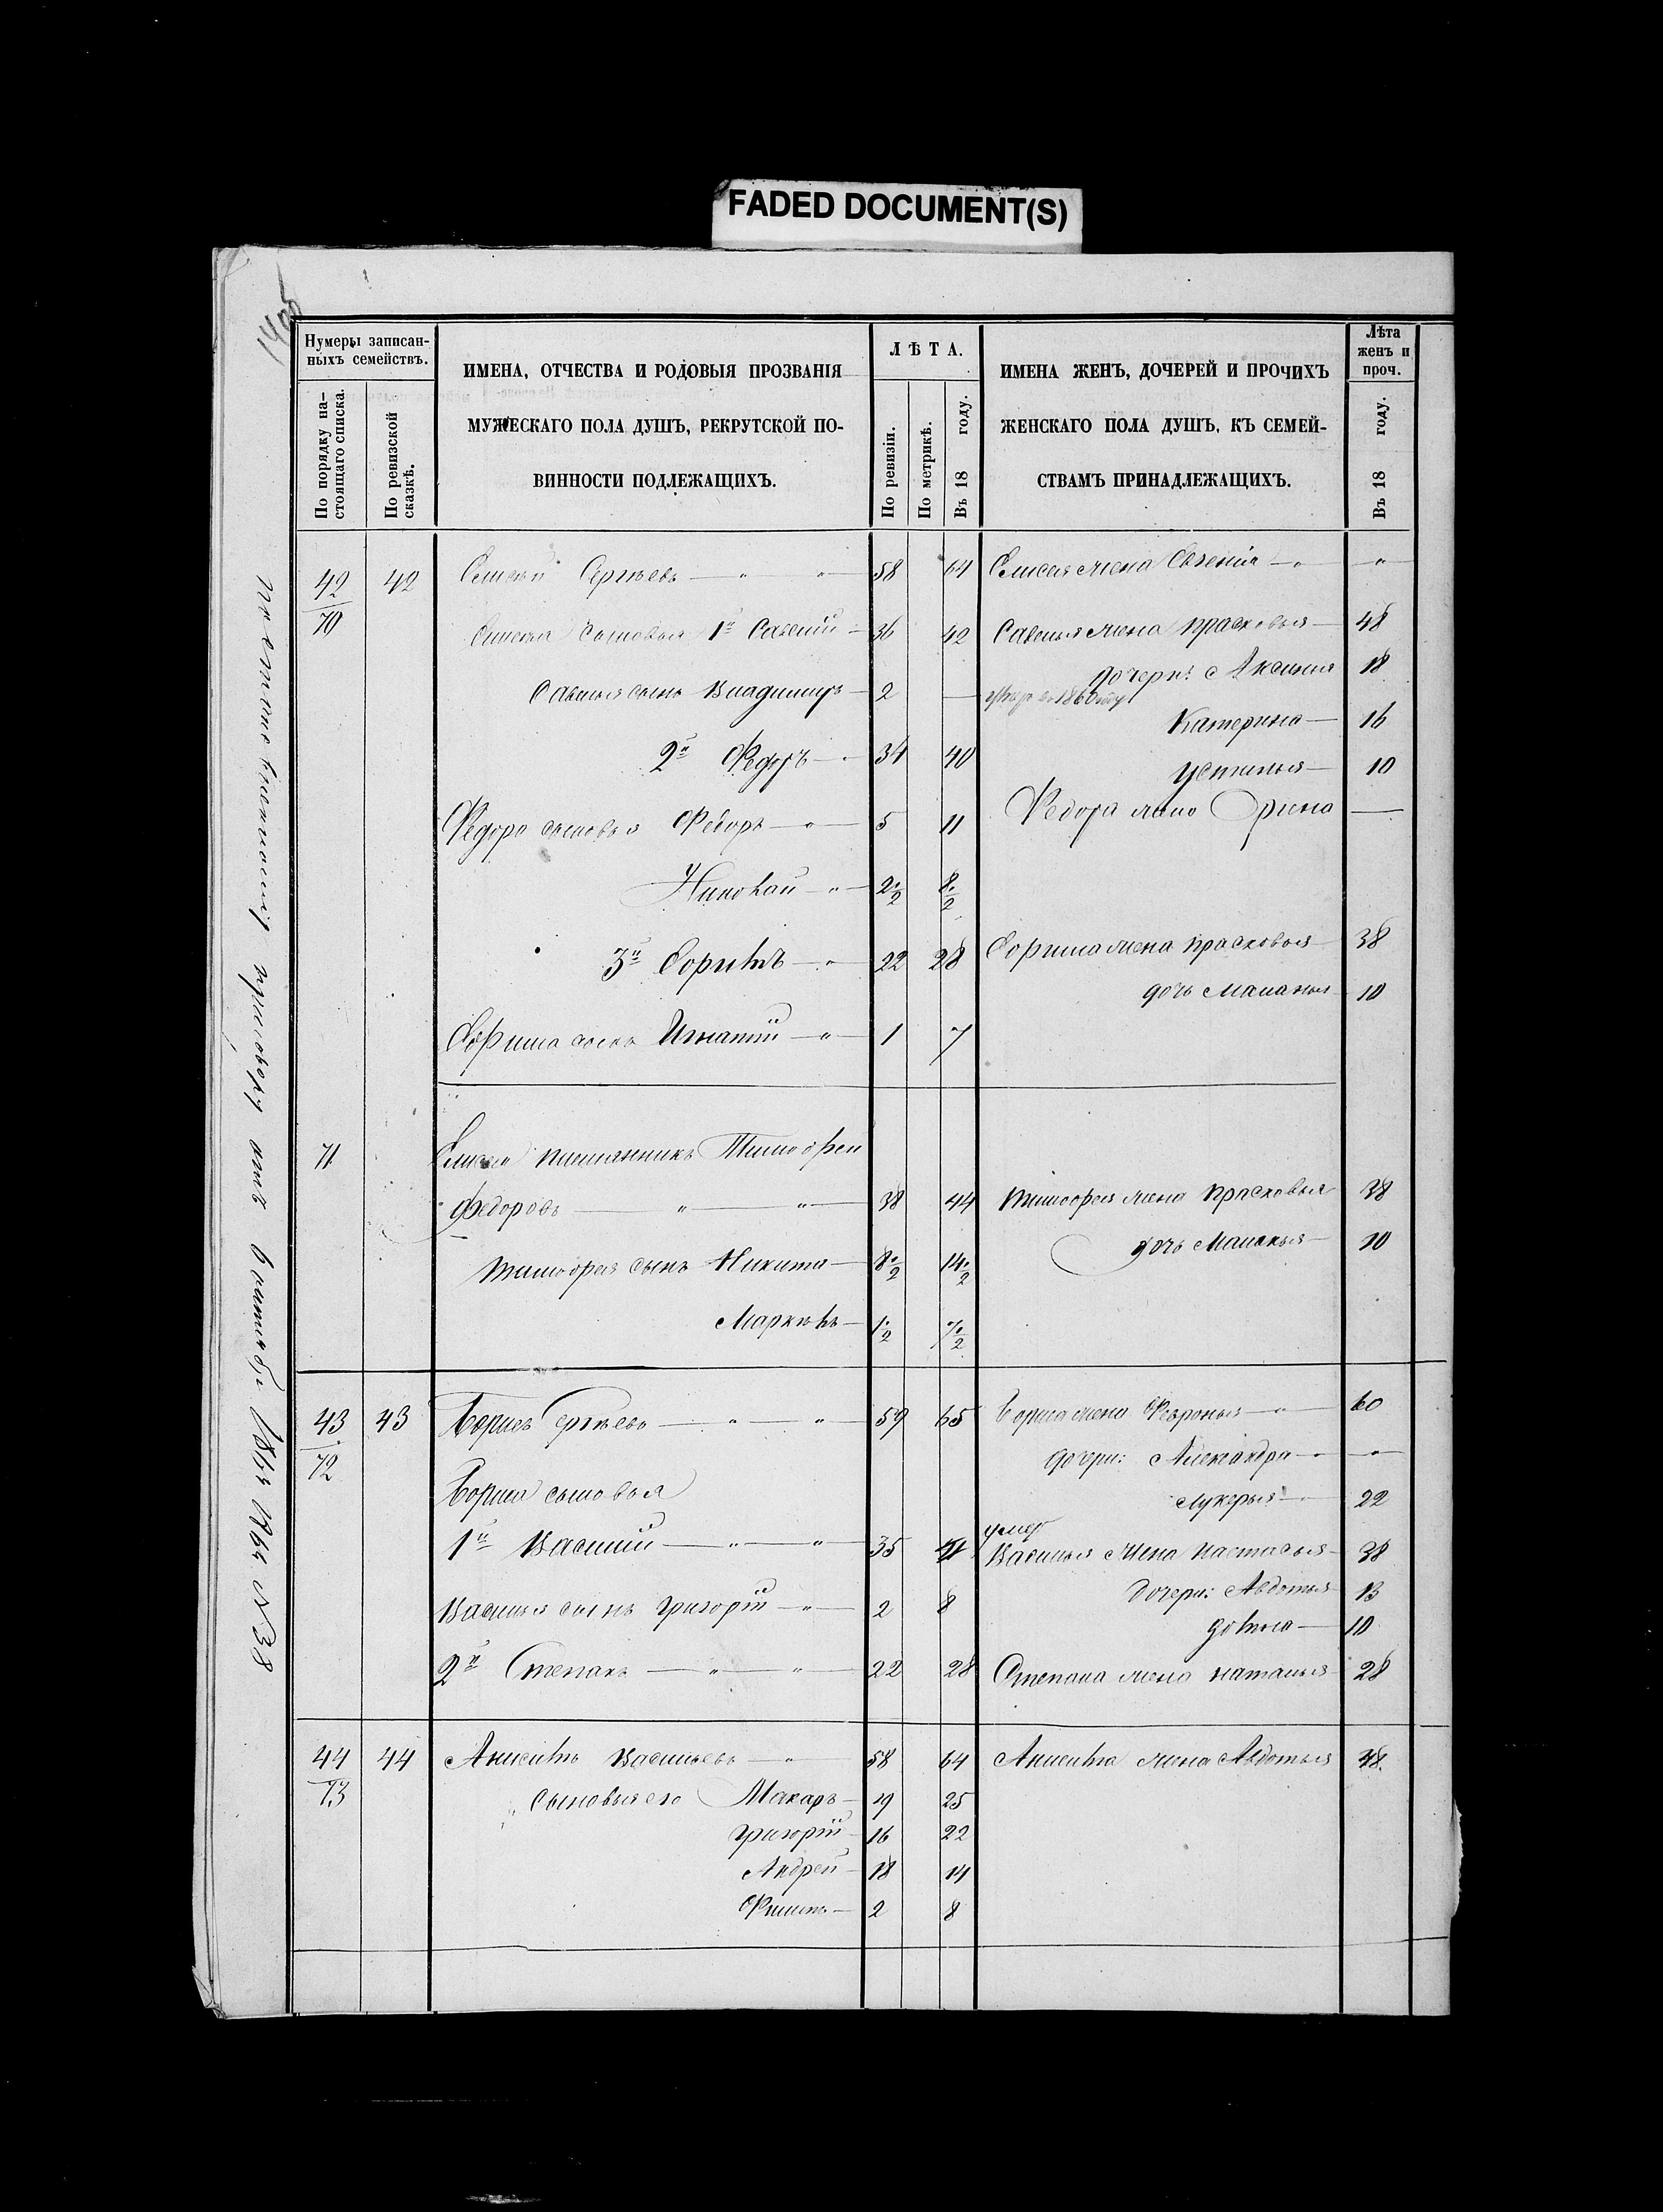 FADED DOCUMENT(S)
Нумеры записан-
ныхъ семействъ.
По порядку на-
стоящаго списка.
По ревизской
сказкѣ.
ИМЕНА, ОТЧЕСТВА И РОДОВЫЯ ПРОЗВАНІЯ
МУЖЕСКАГО ПОЛА ДУШЪ, РЕКРУТСКОЙ ПО-
ВИННОСТИ ПОДЛЕЖАЩИХЪ.
ЛѢТА.
По ревизіи.
По метрикѣ.
Въ 18 году.
ИМЕНА ЖЕНЪ, ДОЧЕРЕЙ И ПРОЧИХЪ
ЖЕНСКАГО ПОЛА ДУШЪ, КЪ СЕМЕЙ-
СТВАМЪ ПРИНАДЛЕЖАЩИХЪ.
Лѣта
женъ и
проч.
Въ 18 году.
42 42 Елисей Сергѣевъ — " — " — 58 64 Елисея жена Евгенія — " — "
70
Елисея сыновья 1й Савелій — 36 42 Савелья жена Прасковья — 48
дочери: Аксинья 18
Савелья сынъ Владимиръ — 2 — 1860 году
Катерина — 16
2й Федоръ — 34 40
Устинья — 10
Федора сыновья Федоръ — " — 5 11 Федора жена Орина —
Николай — " — 2½ 8½
3й — " — 22 28 жена Прасковья — 38
дочь Маланья — 10
сынъ Игнатій — " — 1 7
71 Елисея племянникъ Тимофей
Федоровъ — " — " — 38 44 Тимофея жена Прасковья 38
дочь Маланья — 10
Тимофея сынъ Никита — 8½ 14½
Маркелъ — 1½ 7½
43 43 Борисъ Сергѣевъ — " — " — 59 65 Бориса жена Февронья — " — 60
72 дочери: Александра — " — "
Бориса сыновья
Лукерья — 22
умер
1й Василій — " — " — 35 41 Василья жена Настасья — 38
дочери: Авдотья 13
Василья сынъ Григорій — " — 2 8
10
2й Степанъ — " — " — 22 28 Степана жена Наталья — 28
44 44 Васильевъ — " — 58 64 жена Авдотья 48.
73 сыновья его Макаръ — 19 25
Григорій — 16 22
Андрей — 18 14
Филипъ — 2 8